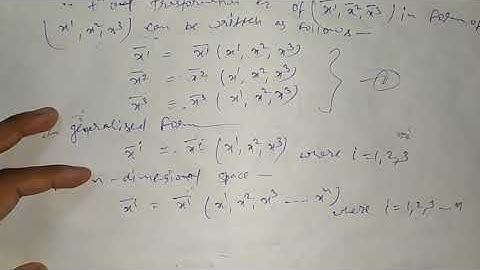 ∴ Tnsformation eq of (x̄¹, x̄², x̄³) in form of
(x¹, x², x³) can be written as follows—
x̄¹ = x̄¹ (x¹, x², x³)
x̄² = x̄² (x¹, x², x³) } — ①
x̄³ = x̄³ (x¹, x², x³)
generalised form—
x̄ⁱ = x̄ⁱ (x¹, x², x³) where i = 1, 2, 3
n-dimensional space—
x̄ⁱ = x̄ⁱ (x¹, x², x³ ---- xⁿ) where i = 1, 2, 3 -- n